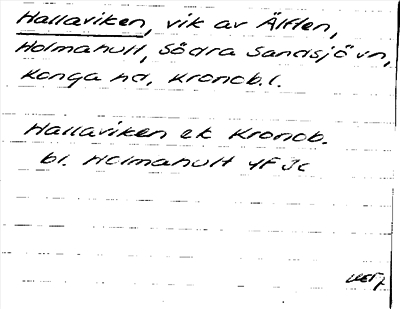 Hallaviken, vik av Älften,
Holmahult, Södra Sandsjö vn,
Konga hd, Kronob.l.
Hallaviken ek Kronob.
bl. Holmahult 4F 3c